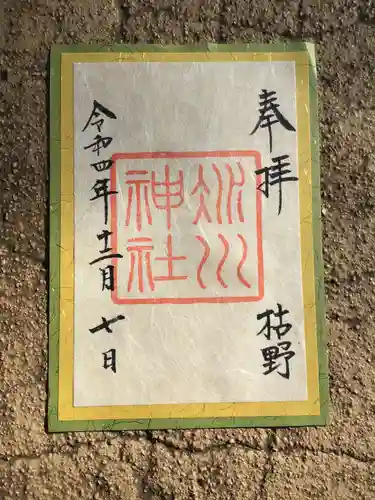 奉拝
枯野
冰川
神社
令和四年十二月七日